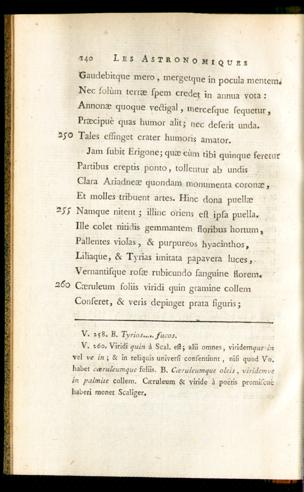 240 LES ASTRONOMIQUES
Gaudebitque mero, mergetque in pocula mentem.
Nec solùm terræ spem credet in annua vota:
Annonæ quoque vectigal, mercesque sequetur,
Præcipuè quas humor alit; nec deserit unda.
250 Tales effinget crater humoris amator.
Jam subit Erigone; quæ cùm tibi quinque feretur
Partibus ereptis ponto, tollentur ab undis
Clara Ariadneæ quondam monumenta coronæ,
Et molles tribuent artes. Hinc dona puellæ
255 Namque nitent; illinc oriens est ipsa puella.
Ille colet nitidis gemmantem floribus hortum,
Pallentes violas, & purpureos hyacinthos,
Liliaque, & Tyrias imitata papavera luces,
Vernantisque rosæ rubicundo sanguine florem.
260 Cæruleum foliis viridi quin gramine collem
Conseret, & veris depinget prata figuris;
V. 258. B. Tyrias.... fucos.
V. 260. Viridi quin à Scal. est; alii omnes, viridemque in
vel ve in; & in reliquis universi consentiunt, nisi quod Vo.
habet cæruleumque foliis. B. Cæruleumque oleis, viridemve
in palmite collem. Cæruleum & viride à poëtis promiscuè
haberi monet Scaliger.